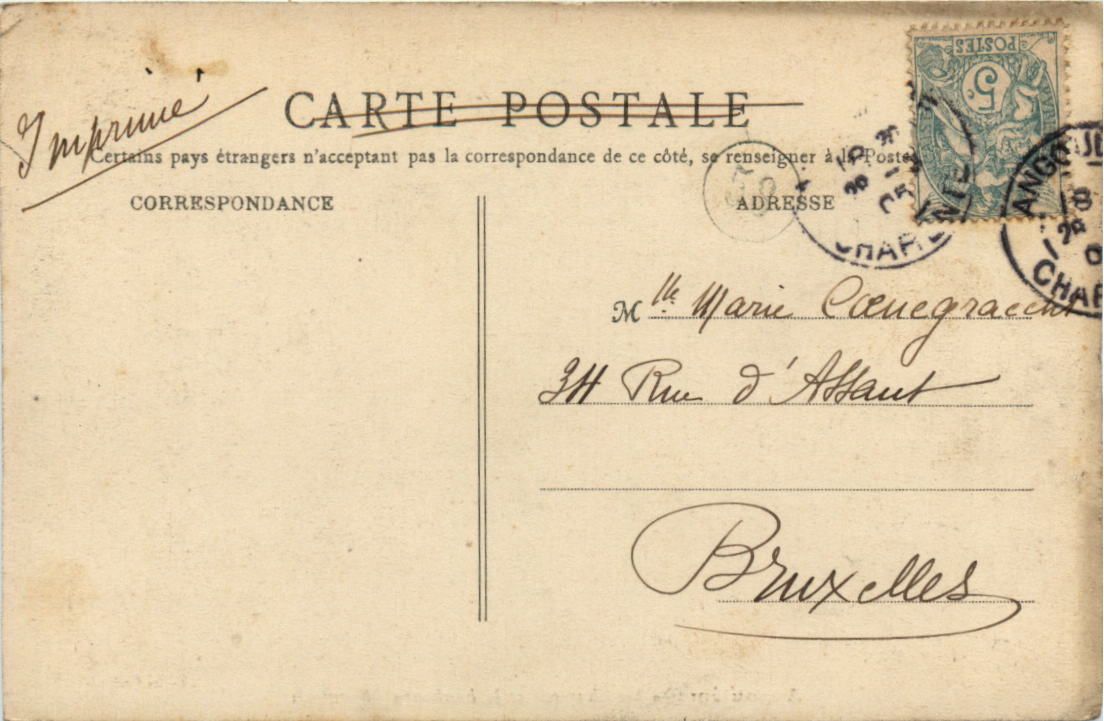 Imprimé
CARTE POSTALE
Certains pays étrangers n'acceptent pas la correspondance de ce côté, se renseigner à la Poste
CORRESPONDANCE
ADRESSE
POSTES
5
ANGO
CHAR
CHARENTE
Mlle Marie Coenegracht
34 Rue d'Assaut
Bruxelles